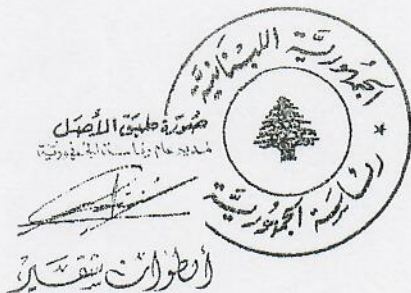 الجمهوريّة اللبنانيّة
رئاسة الجمهوريّة
صورة طبق الأصل
مدير عام رئاسة الجمهورية
أنطوان شقير